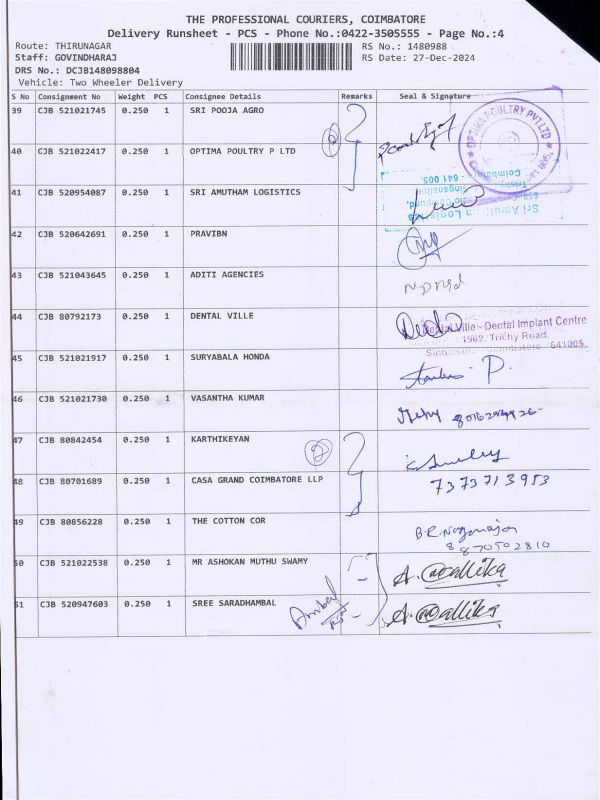 THE PROFESSIONAL COURIERS, COIMBATORE
Delivery Runsheet - PCS - Phone No.:0422-3505555 - Page No.:4
Route: THIRUNAGAR RS No.: 1480988
Staff: GOVINDHARAJ RS Date: 27-Dec-2024
DRS No.: DCJB148098804
Vehicle: Two Wheeler Delivery
S No Consignment No Weight PCS Consignee Details Remarks Seal & Signature
39 CJB 521021745 0.250 1 SRI POOJA AGRO
OPTIMA POULTRY PVT LTD
40 CJB 521022417 0.250 1 OPTIMA POULTRY P LTD
2
Coimbatore - 641 005.
41 CJB 520954087 0.250 1 SRI AMUTHAM LOGISTICS
42 CJB 520642691 0.250 1 PRAVIBN
43 CJB 521043645 0.250 1 ADITI AGENCIES
44 CJB 80792173 0.250 1 DENTAL VILLE
Dental Ville - Dental Implant Centre
1962, Trichy Road,
Coimbatore 641005
45 CJB 521021917 0.250 1 SURYABALA HONDA
P.
46 CJB 521021730 0.250 1 VASANTHA KUMAR
47 CJB 80842454 0.250 1 KARTHIKEYAN
2
48 CJB 80701689 0.250 1 CASA GRAND COIMBATORE LLP
7373713953
49 CJB 80856228 0.250 1 THE COTTON COR
B.R. Nagarajan
8870502810
50 CJB 521022538 0.250 1 MR ASHOKAN MUTHU SWAMY
A. Mallika
51 CJB 520947603 0.250 1 SREE SARADHAMBAL
A. Mallika